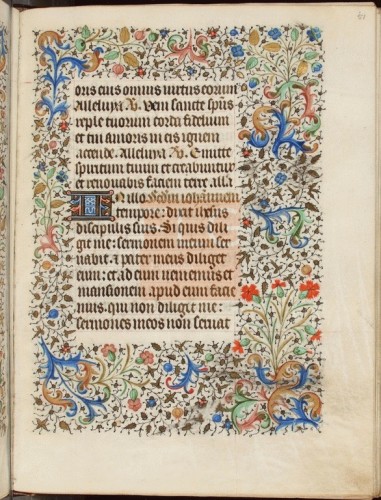 oris eius omnis uirtus eorum
Alleluya ℣. Veni sancte spūs
reple tuorum corda fidelium
et tui amoris in eis ignem
accende. Alleluya ℣. Emitte
spiritum tuum et creabuntur
et renouabis faciem terre. all.
In illo. Scđm iohannem
tempore: dixit ihesus
discipulis suis. Si quis dili
git me: sermonem meum ser
uabit. et pater meus diliget
eum: et ad eum ueniemus et
mansionem apud eum facie
mus. qui non diligit me:
sermones meos non seruat